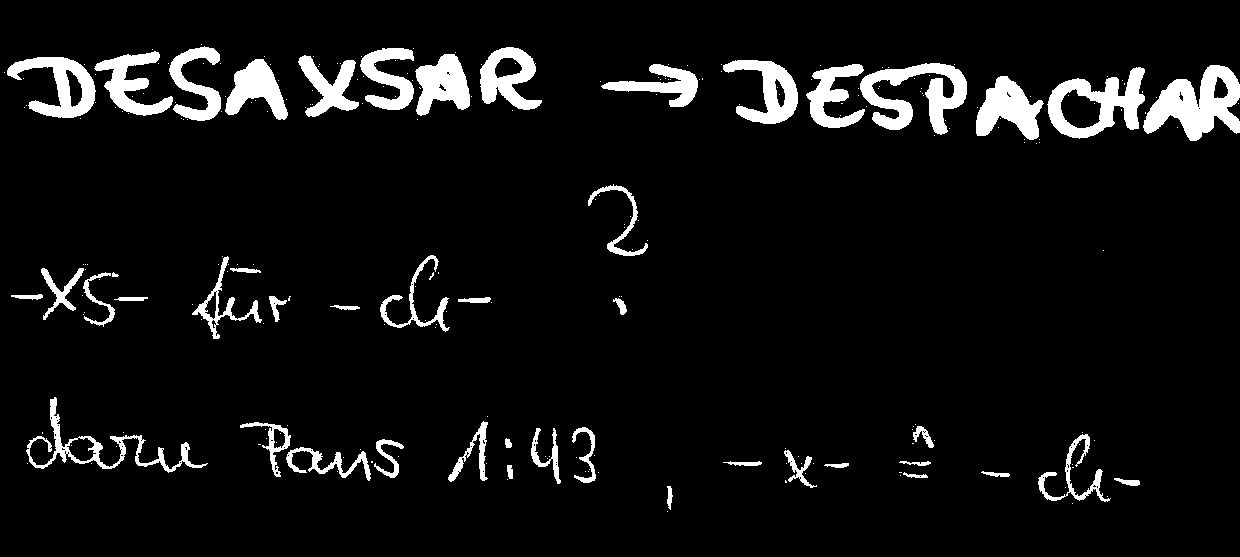 DESAXSAR → DESPACHAR
?
-XS- für -ch-
dazu Paus 1:43, -x- ≙ -ch-